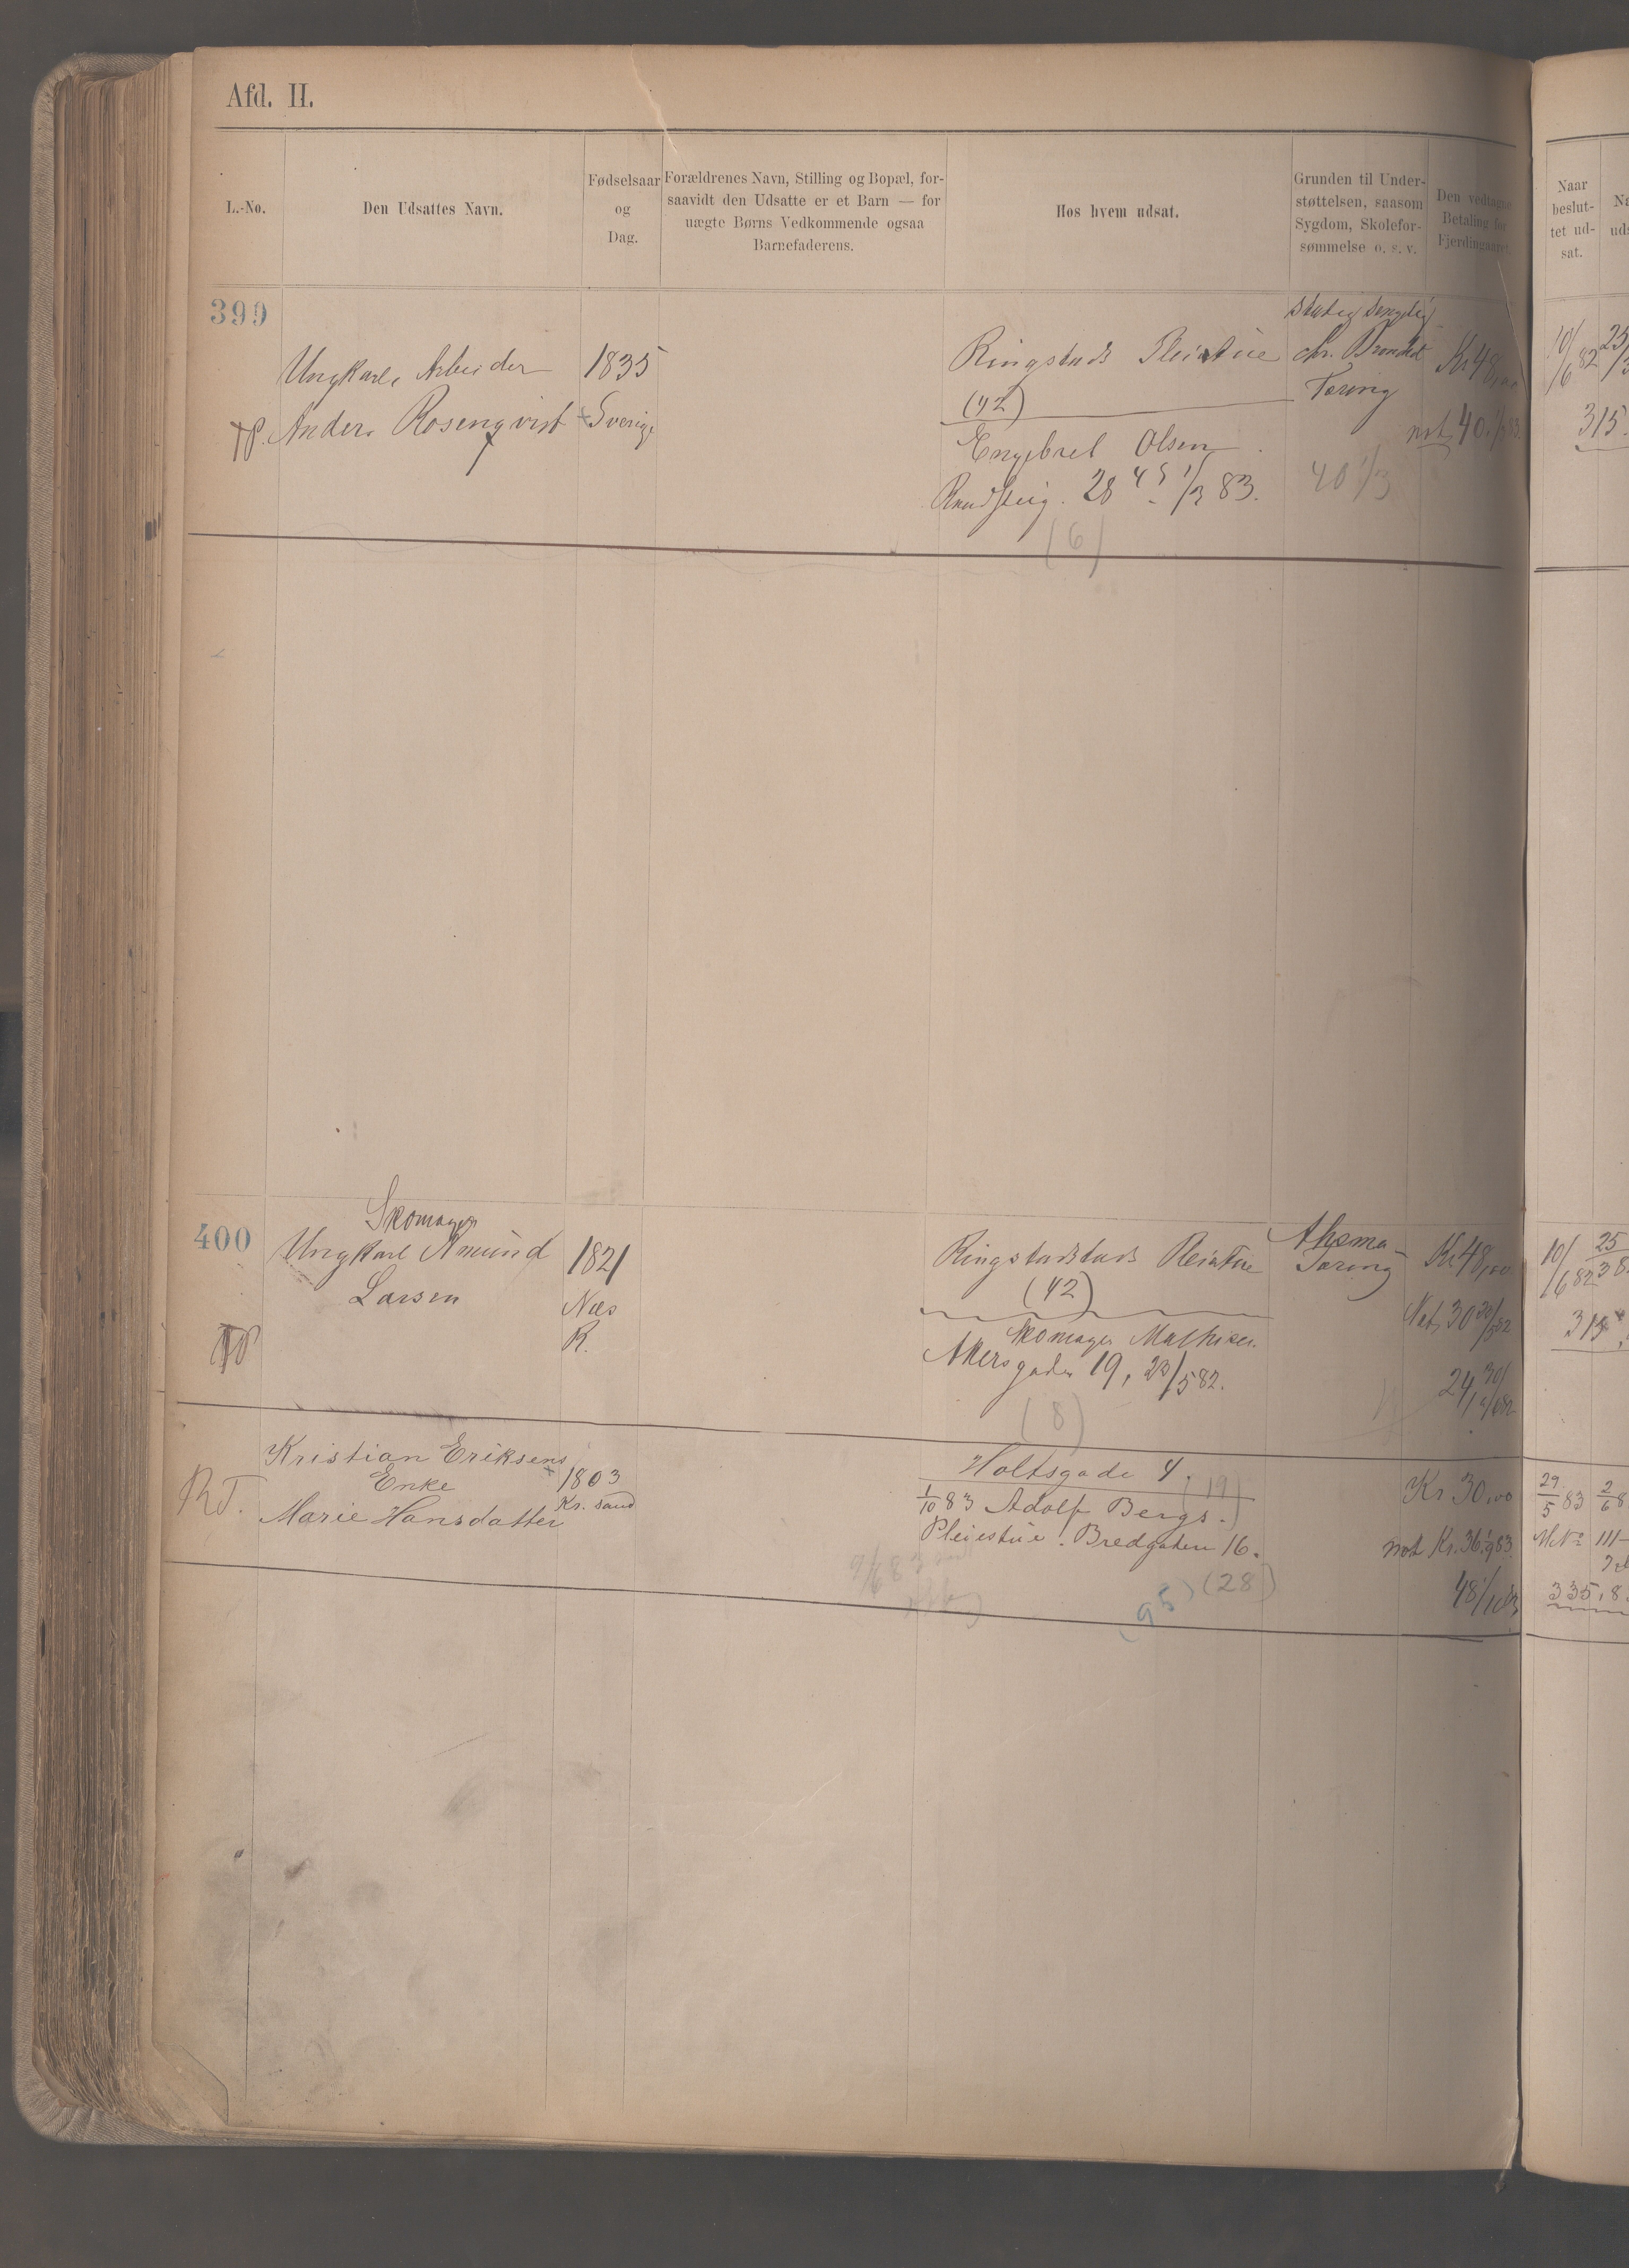 Afd. II.
L.-No.
Den Udsattes Navn.
Fødselsaar
og
Dag.
Forældrenes Navn, Stilling og Bopæl, for-
saavidt den Udsatte er et Barn — for
uægte Børns Vedkommende ogsaa
Barnefaderens.
Hos hvem udsat.
Grunden til Under-
støttelsen, saasom
Sygdom, Skolefor-
sømmelse o. s. v.
Den vedtagne
Betaling for
Fjerdingaaret.
Naar
beslut-
tet ud-
sat.
399
Ungkarl, Arbeider
Anders Rosenqvist
1835
Sverige
Ringstads Pleiestue
(42)
Engebret Olsen
28 1/3 83.
(6)
stadig sengelig
chr. Bronchit
Tæring
40 1/3
Kr 48,00
not 40 1/3 83.
10/6 82
315.
400
Skomager
Ungkarl Amund
Larsen
1821
Næs
R.
Ringstadstads Pleiestue
(42)
Skomager Mathisen
Akersgaden 19, 23/5 82.
(8)
Tæring
Kr 48,00
Not, 30
24,
10/6 82
25
315
RT.
Kristian Eriksens
Enke
Marie Hansdatter
1803
Kr. sand
Holtsgade 4.
(19)
1/10 83 Adolf Bergs
Pleiestue. Bredgaden 16.
(28)
(95)
Kr 30,00
not Kr. 36 1/9 83.
48 1/10 83
29/5 83
M No 111
335,8